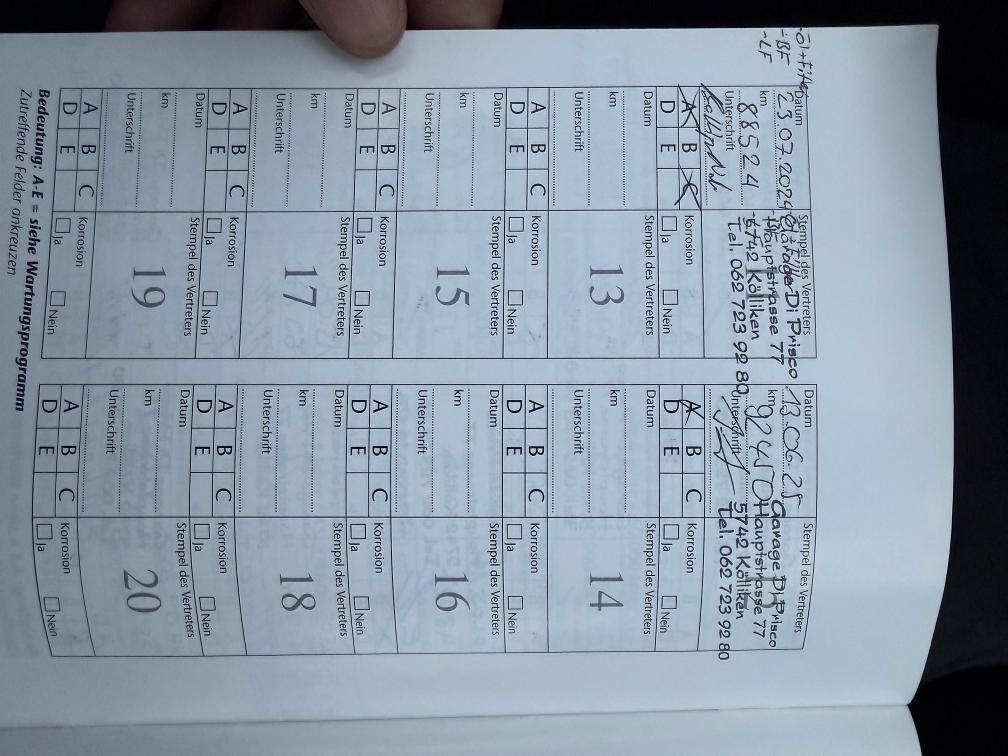 -Öl+Filter
-BF
-LF
Datum 23.07.2024
km 88524
Unterschrift
Stempel des Vertreters
Garage Di Prisco
Hauptstrasse 77
5742 Kölliken
Tel. 062 723 92 80
A B C
D E
Korrosion
Ja Nein
Datum 13.06.25
km 92450
Unterschrift
Stempel des Vertreters
Garage Di Prisco
Hauptstrasse 77
5742 Kölliken
Tel. 062 723 92 80
A B C
D E
Korrosion
Ja Nein
Datum
km
Unterschrift
Stempel des Vertreters
13
A B C
D E
Korrosion
Ja Nein
Datum
km
Unterschrift
Stempel des Vertreters
14
A B C
D E
Korrosion
Ja Nein
Datum
km
Unterschrift
Stempel des Vertreters
15
A B C
D E
Korrosion
Ja Nein
Datum
km
Unterschrift
Stempel des Vertreters
16
A B C
D E
Korrosion
Ja Nein
Datum
km
Unterschrift
Stempel des Vertreters
17
A B C
D E
Korrosion
Ja Nein
Datum
km
Unterschrift
Stempel des Vertreters
18
A B C
D E
Korrosion
Ja Nein
Datum
km
Unterschrift
Stempel des Vertreters
19
A B C
D E
Korrosion
Ja Nein
Datum
km
Unterschrift
Stempel des Vertreters
20
A B C
D E
Korrosion
Ja Nein
Bedeutung: A-E = siehe Wartungsprogramm
Zutreffende Felder ankreuzen